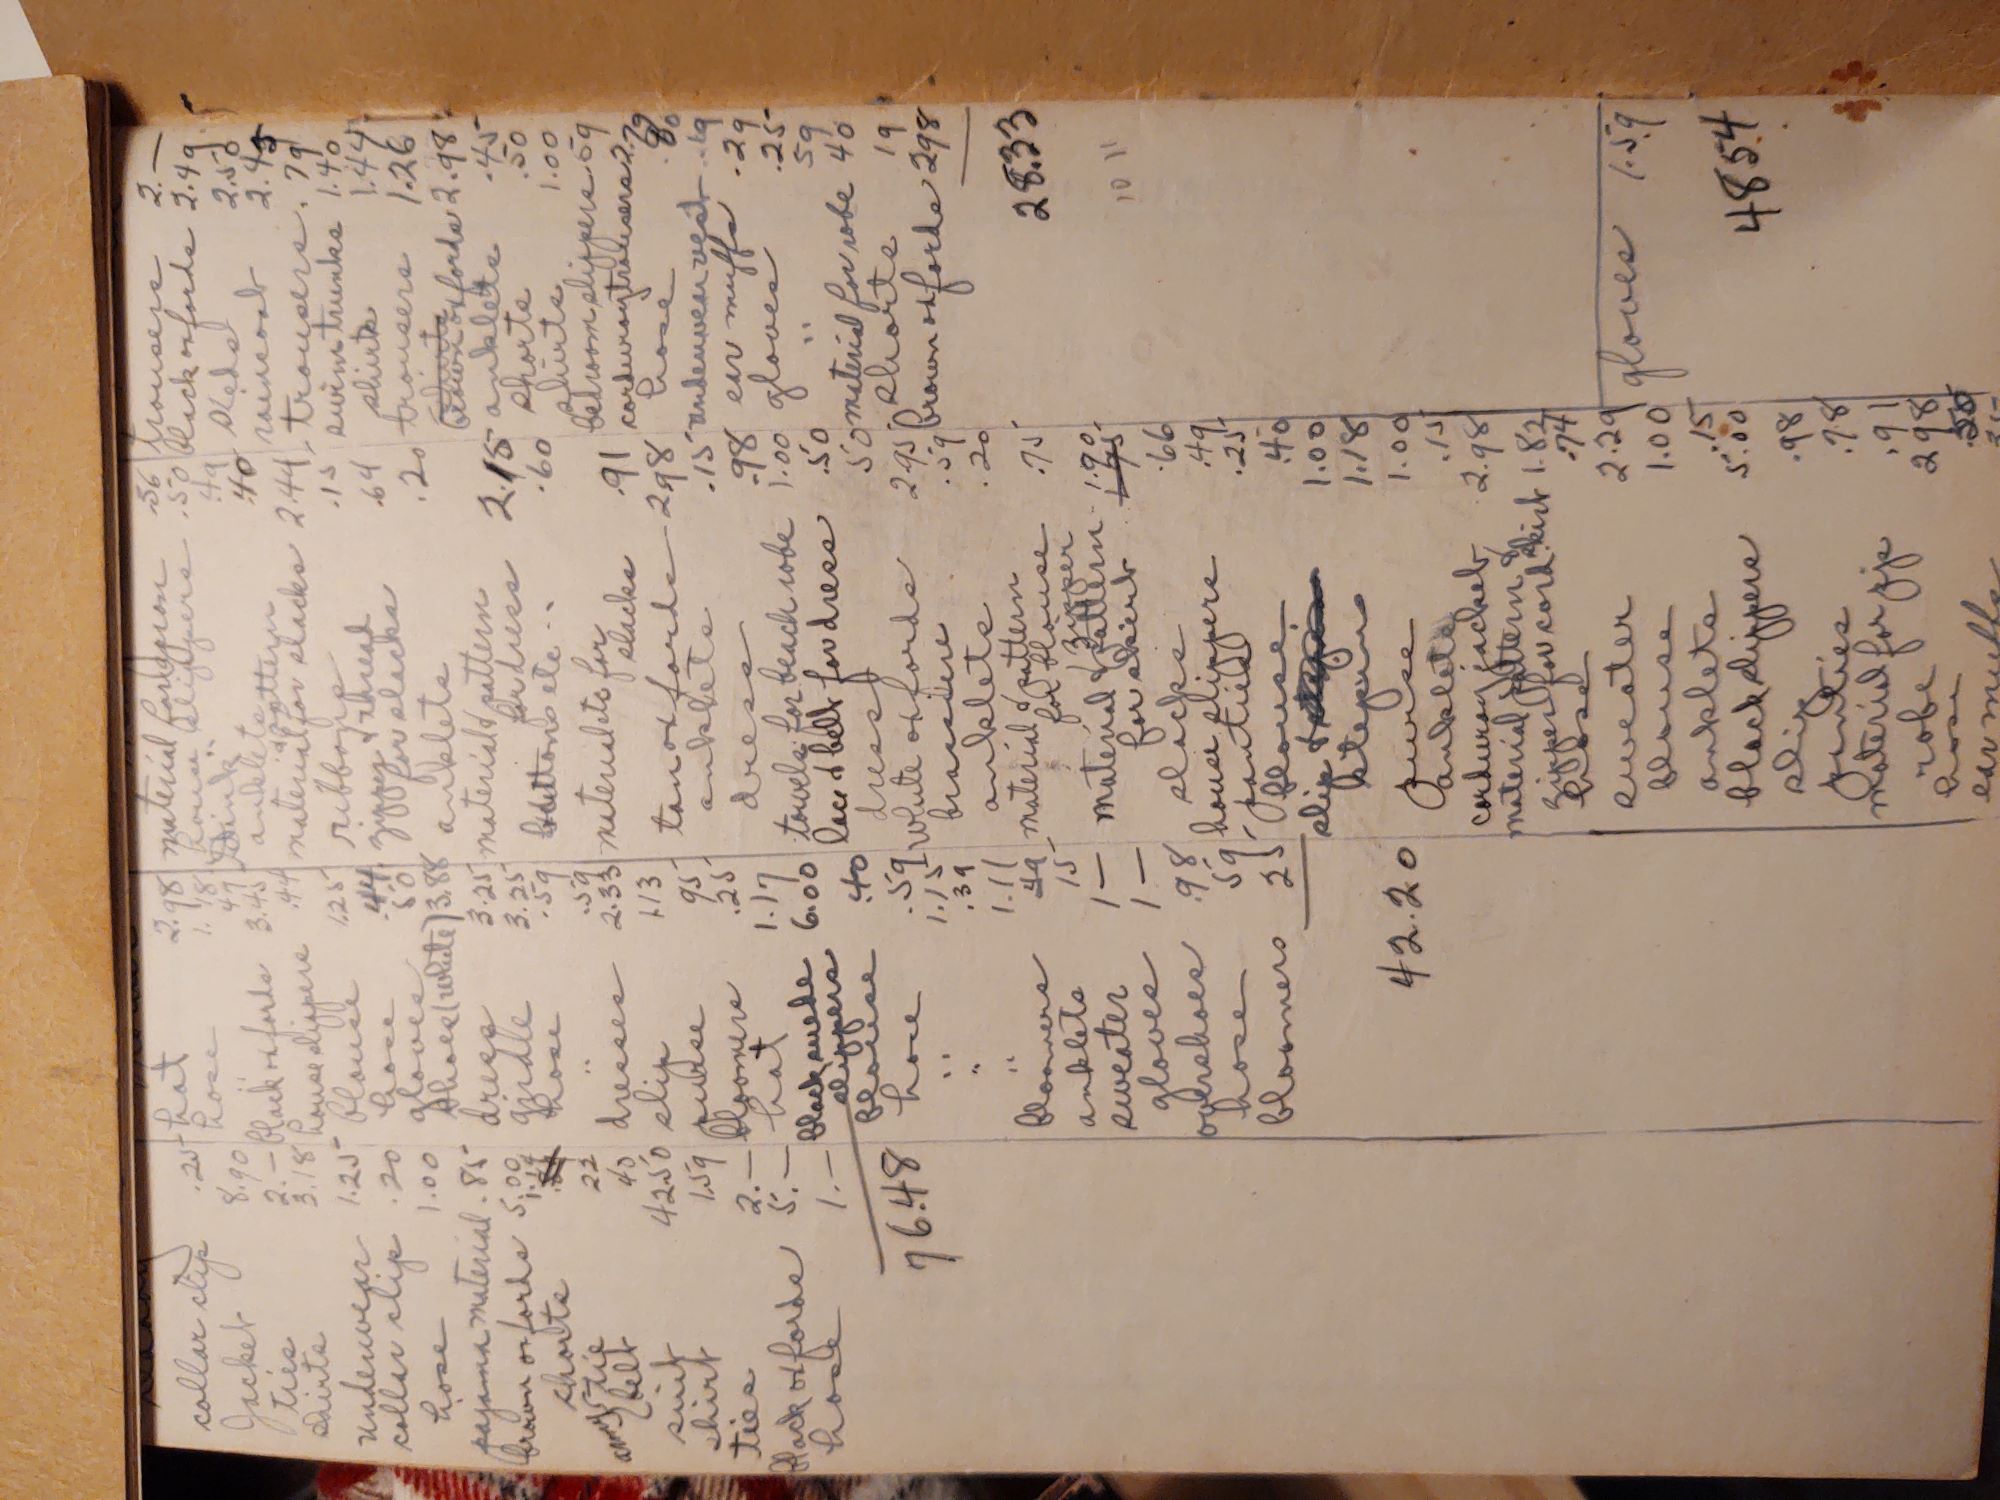 collar clip .25
Jacket 8.90
ties 2.—
shirts 3.18
underwear 1.25
collar clip .20
hose 1.00
pajama material .85
brown oxfords 5.00
shorts 1.14
tie 22
belt 40
suit 42.50
shirt 1.59
ties 2.—
black oxfords 5.—
hose 1.—
76.48
hat 2.98
hose 1.18
" 49
black oxfords 3.45
house slippers .44
blouse 1.25
hose .44
gloves .50
shoes (white) 3.88
dress 3.25
girdle 3.25
hose .59
" .59
dresses 2.33
slip 1.13
purse 95
bloomers .25
hat 1.17
black suede slippers 6.00
blouse .40
hose .59
" 1.15
" .39
bloomers 1.11
anklets 49
sweater 15
gloves 1—
overshoes 1—
hose .98
bloomers 59
25
42.20
material for
house slippers .56
" .50
.49
anklets .40
& pattern
material for slacks 2.44
ribbons .15
zipper & thread
for slacks .64
anklets .20
material & pattern
for dress 2.15
buttons etc. .60
material for
slacks .91
tan oxfords 2.98
anklets .15
dress .98
towels for beach robe 1.00
lace & belt for dress .50
dress .50
white oxfords 2.95
brassiere .59
anklets .20
material & pattern
for blouse .75
zipper
material & pattern
for skirt 1.90
slacks .66
house slippers .49
panties .25
blouse .40
slip 1.00
1.18
purse 1.00
anklets .15
corduroy jacket 2.98
material pattern &
zipper for cord. skirt 1.82
.74
sweater 2.29
blouse 1.00
anklets .15
black slippers 5.00
slip .98
panties .78
material for
robe .91
hose 2.98
ear muffs
trousers 2.—
black oxfords 2.49
sled 2.50
raincoat 2.45
trousers .79
swim trunks 1.40
shirts 1.44
trousers 1.26
brown oxfords 2.98
anklets .45
shorts .50
shirts 1.00
bedroom slippers .59
corduroy trousers 2.79
hose .80
underwear vest .19
ear muffs .29
gloves .25
" 59
material for robe 40
shorts 19
brown oxfords 298
28.33
10 11
gloves 1.59
48.54